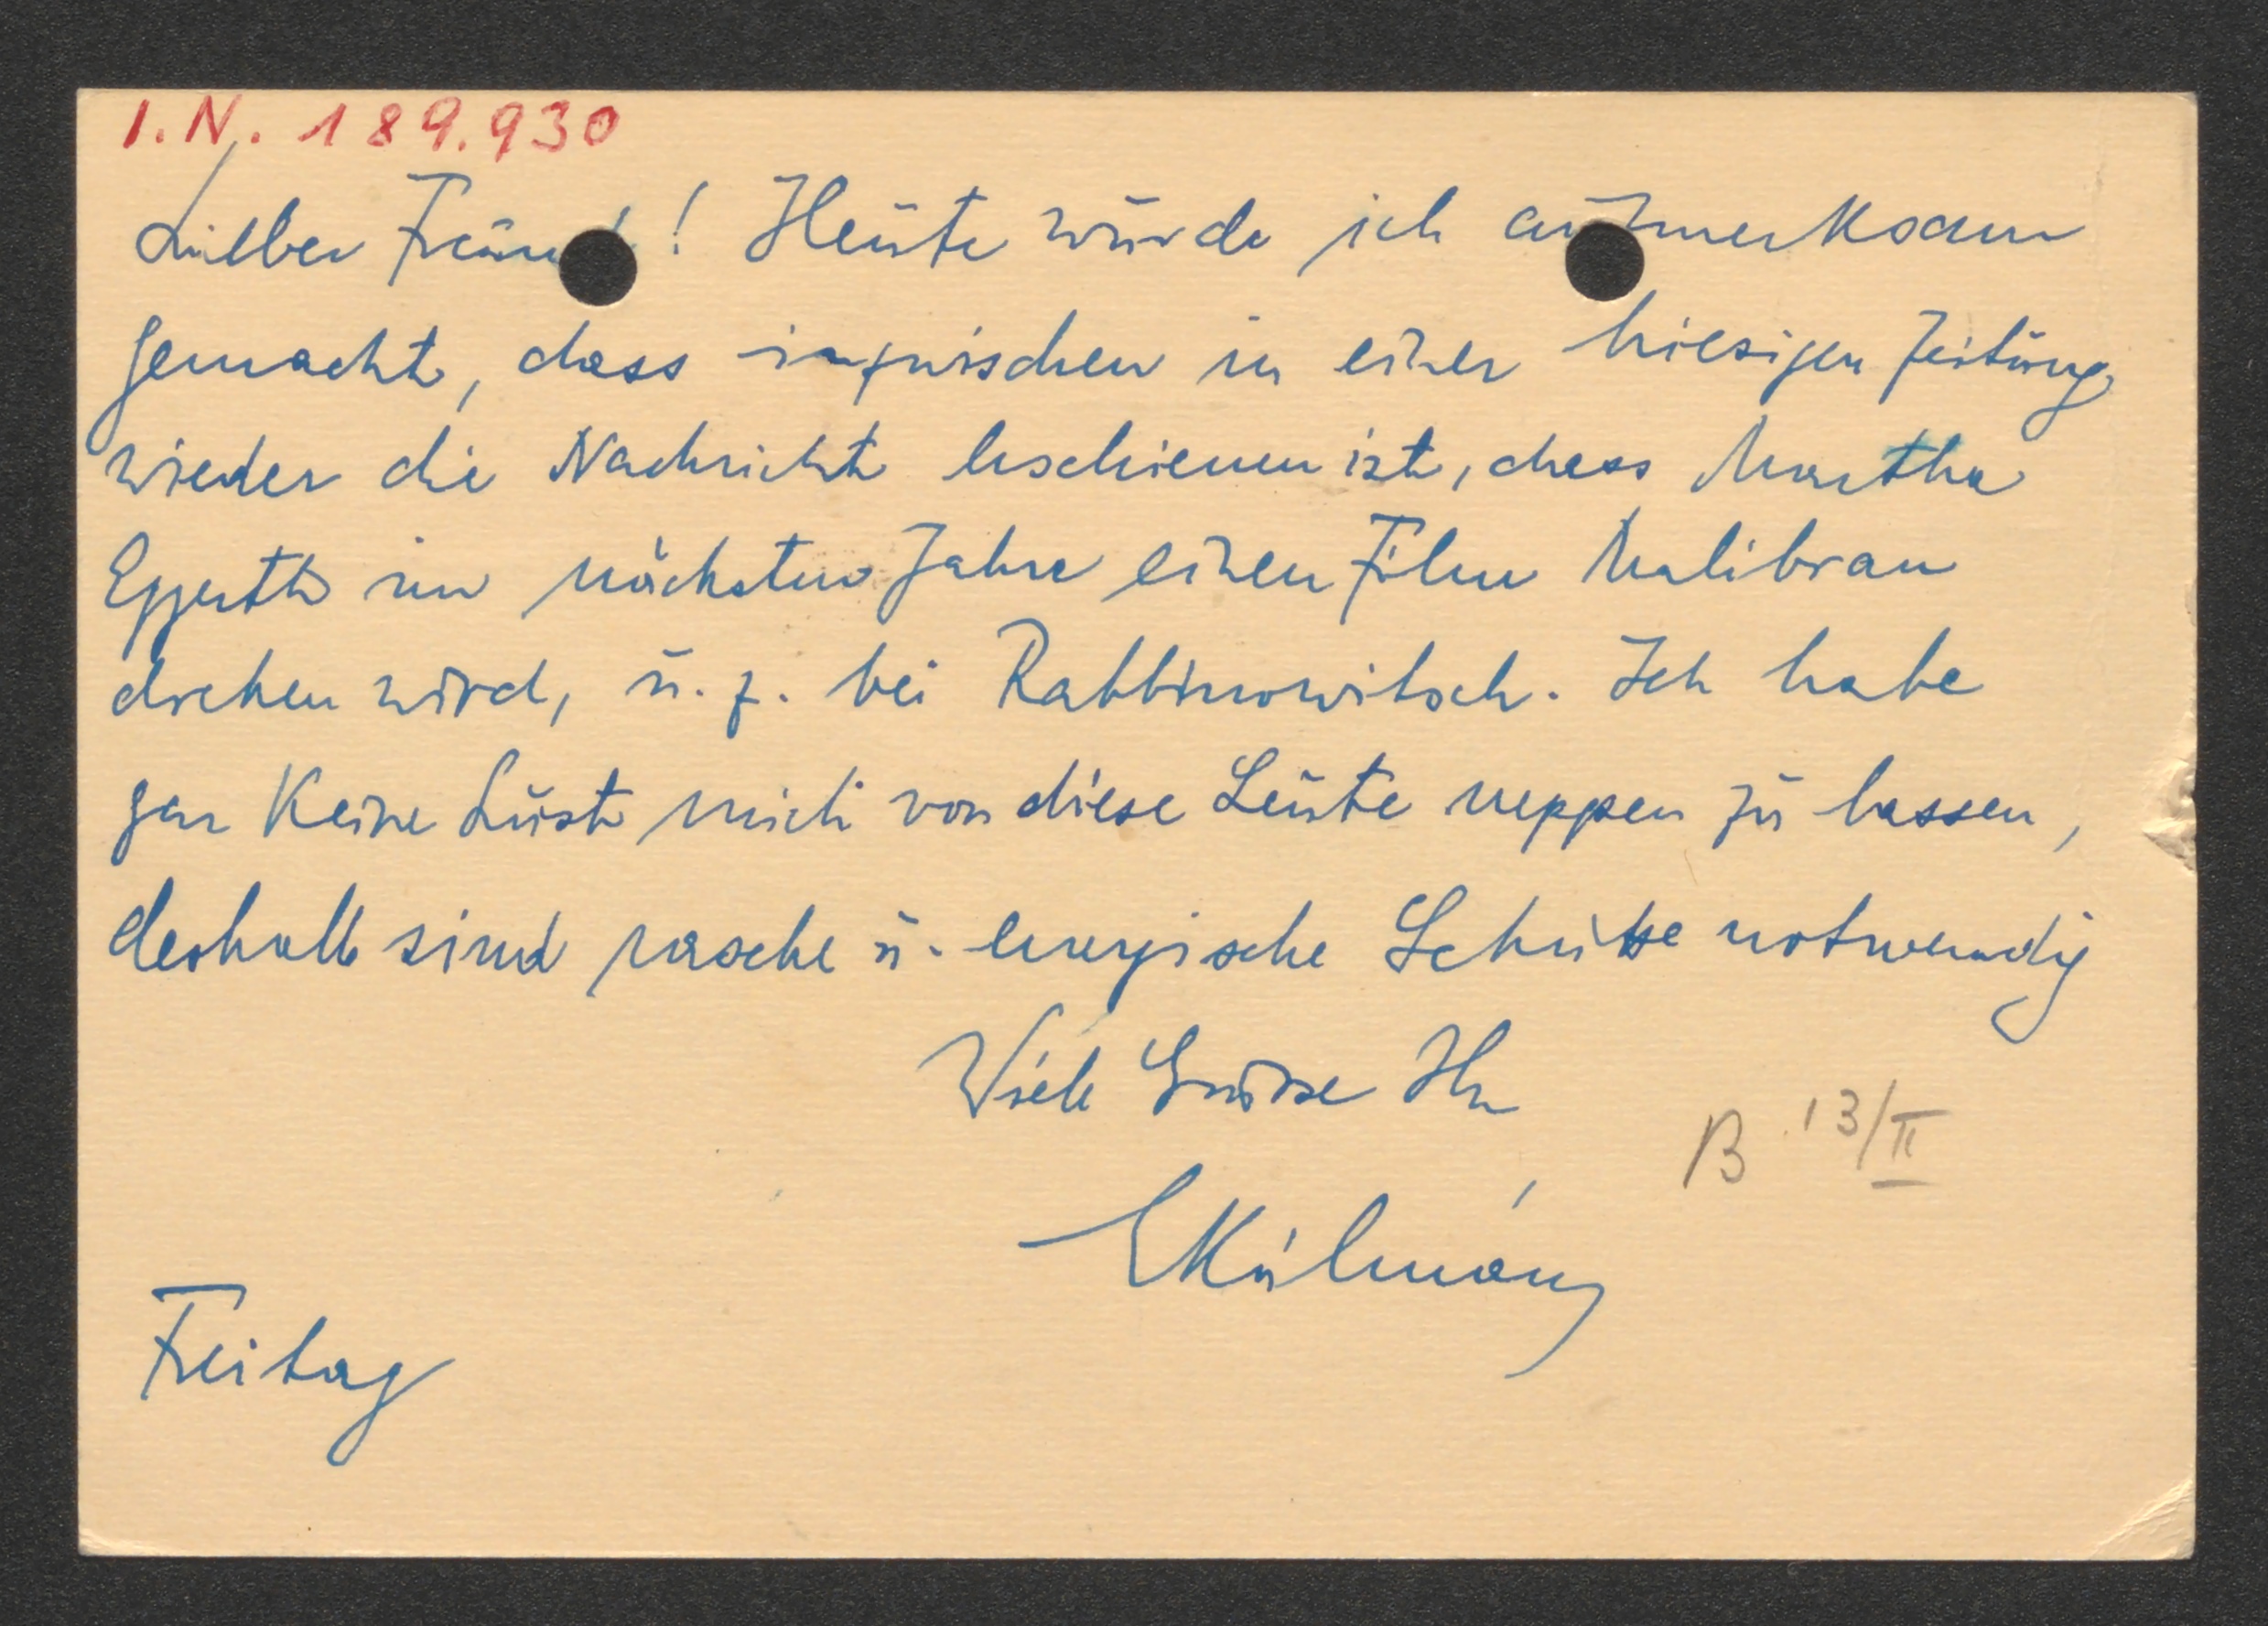 I.N. 189.930
Lieber Freund! Heute wurde ich aufmerksam
gemacht, dass inzwischen in einer hiesigen Zeitung
wieder die Nachricht erschienen ist, dass Martha
Eggerth im nächsten Jahre einen Film Malibran
drehen wird, u. z. bei Rabbinowitsch. Ich habe
gar keine Lust mich von diese Leute neppen zu lassen,
deshalb sind rasche u. energische Schritte notwendig
Viele Grüsse Ihr
EKálmán
B 13/II
Freitag